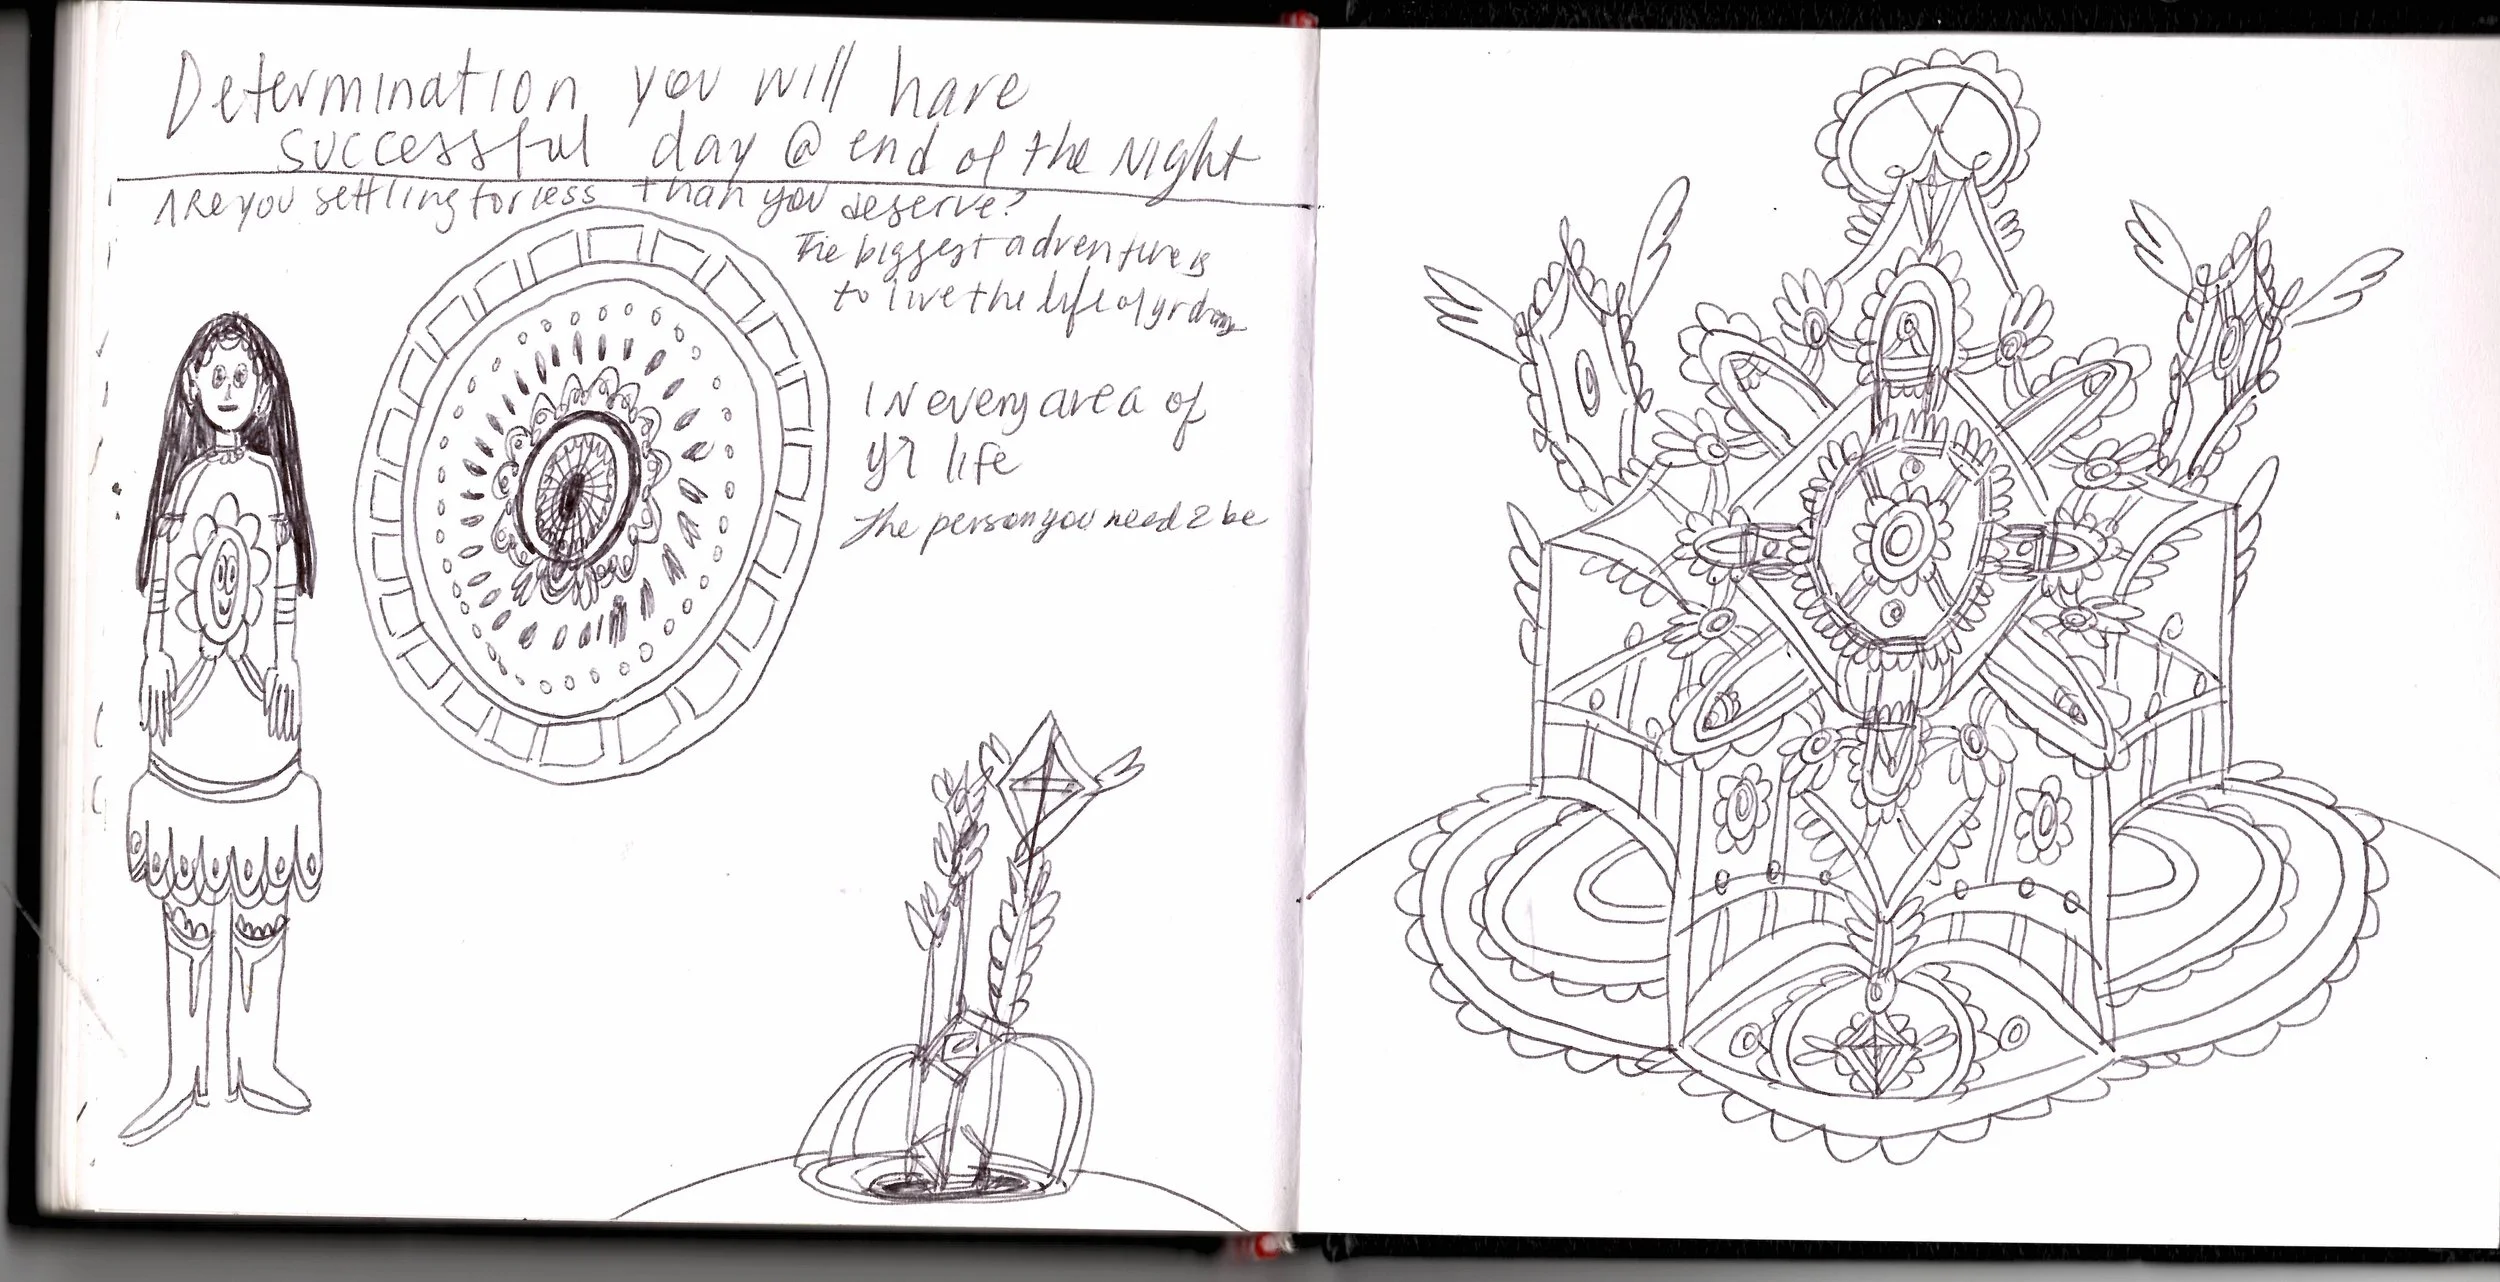 Determination you will have
successful day @ end of the Night
ARe you settling for less than you deserve?
The biggest adventure is
to live the life of yr dreams
IN every area of
yr life
The person you need 2 be